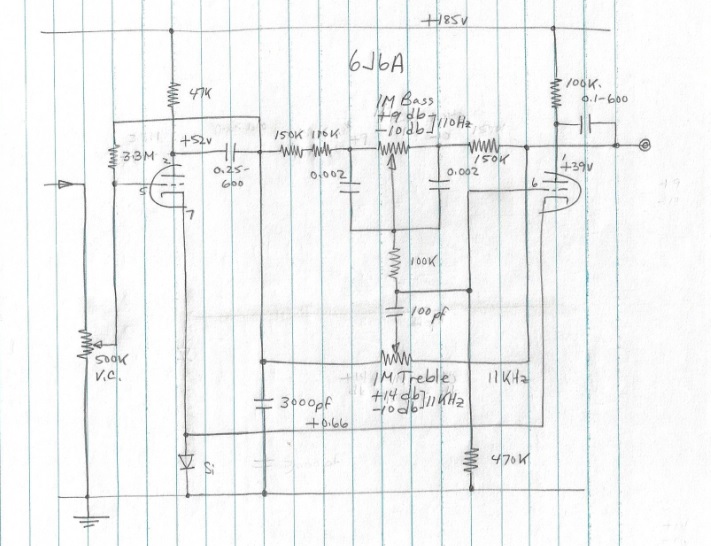 +185v
6J6A
47K
100K
0.1-600
1M Bass
+9 db
-10 db ] 110Hz
150K 110K
150K
+52v
3.3M
2
0.25-
600
0.002
0.002
1
+39v
5
6
7
100K
100pf
500K
V.C.
1M Treble
+14 db
-10 db ] 11KHz
11KHz
3000pf
+0.66
Si
470K